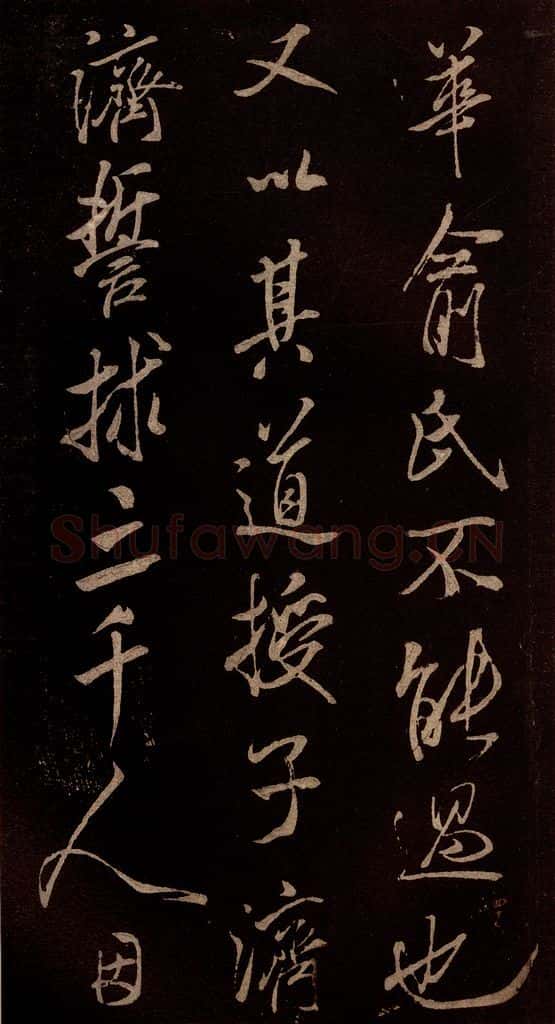 華俞氏不能過也
又以其道授子濟
濟誓捄二千人因
Shufawang.CN